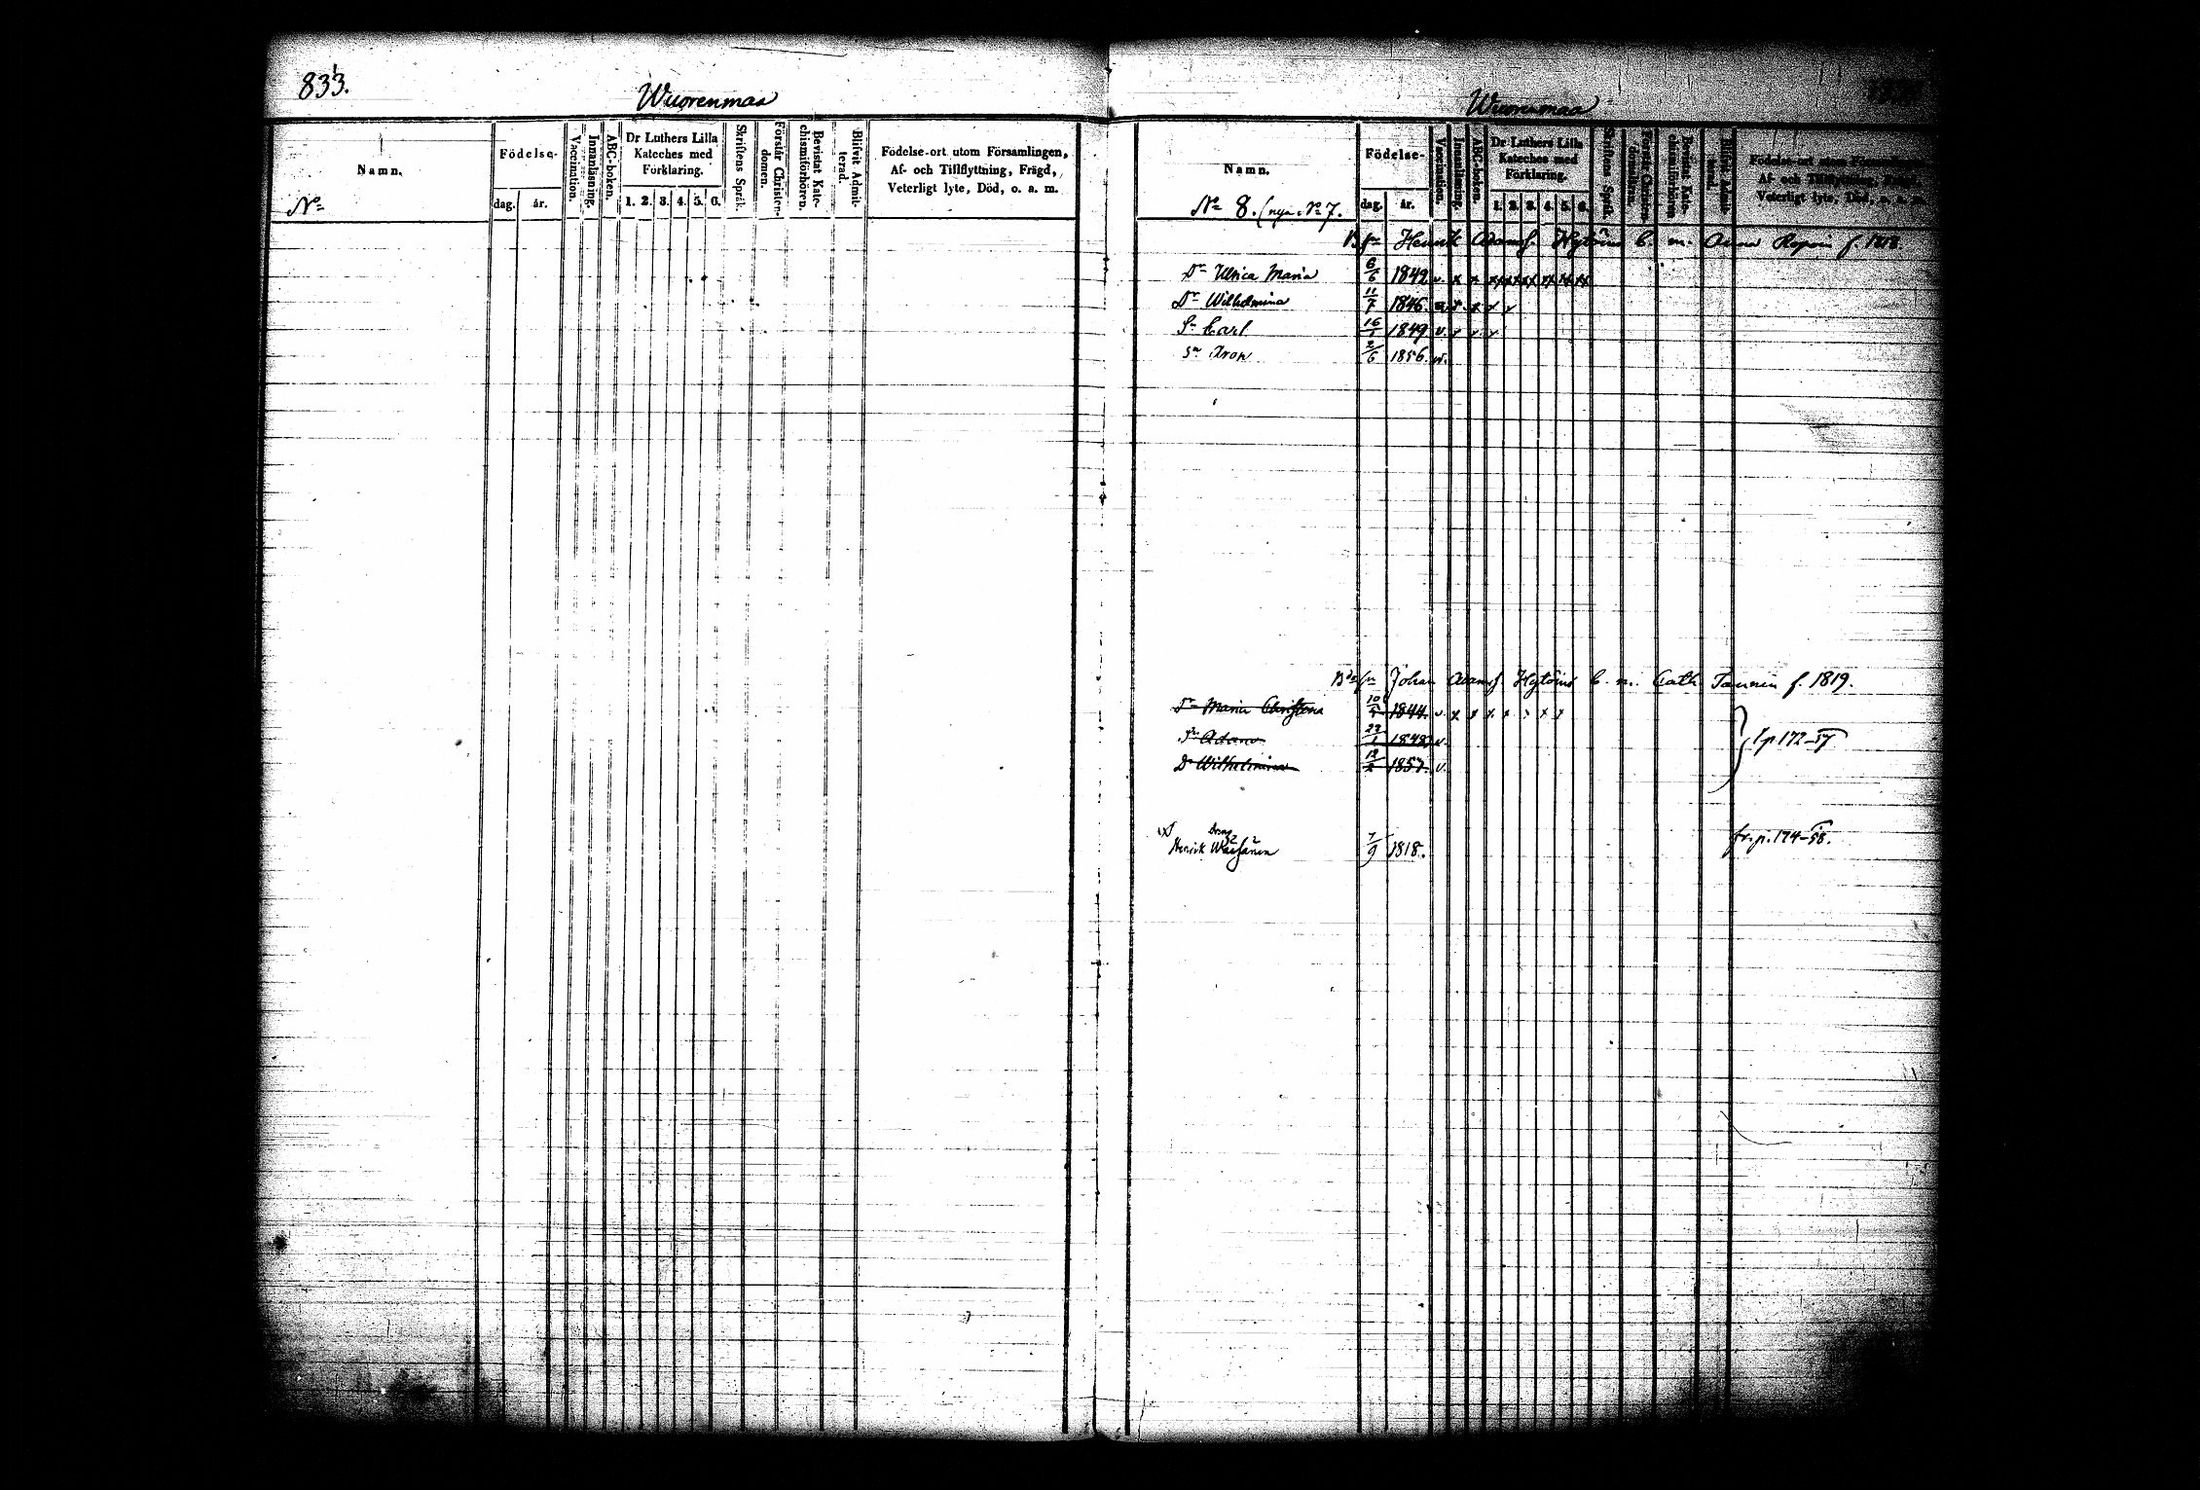 833.
Wuorenmaa
Namn.
No
Födelse-
dag. år.
Vaccination.
Innanläsning.
ABC-boken.
Dr Luthers Lilla
Kateches med
Förklaring.
1. 2. 3. 4. 5. 6.
Skriftens Språk.
Förstår Christen-
domen.
Bevistat Kate-
chismiförhören.
Blifvit Admit-
terad.
Födelse-ort utom Församlingen,
Af- och Tillflyttning, Frägd,
Veterligt lyte, Död, o. a. m.
Wuorenmaa
Namn.
No 8. (nya No 7.
Födelse-
dag. år.
Vaccination.
Innanläsning.
ABC-boken.
Dr Luthers Lilla
Kateches med
Förklaring.
1. 2. 3. 4. 5. 6.
Skriftens Språk.
Förstår Christen-
domen.
Bevistat Kate-
chismiförhören.
Blifvit Admit-
terad.
Födelse-ort utom Församlingen,
Af- och Tillflyttning, Frägd,
Veterligt lyte, Död, o. a. m.
Henrik Adamss. Hytönus m. f. 1818.
Dr Ulrica Maria 6/6 1842 v. x x x x x x x x
Dr Wilhelmina 11/7 1846 x x x x
Sn Carl 16/1 1849 v. x x x
Sn Aron 2/6 1856. v.
Johan Adamss Hytönus m. Cath. f. 1819.
Dr Maria Christina 10/5 1844. v. x x x x x x x
Sn Adam 1848 v.
Dr Wilhelmina 1857. v.
fp 172-57
Dreng
Henrik 7/9 1818.
fr. p. 174-58.